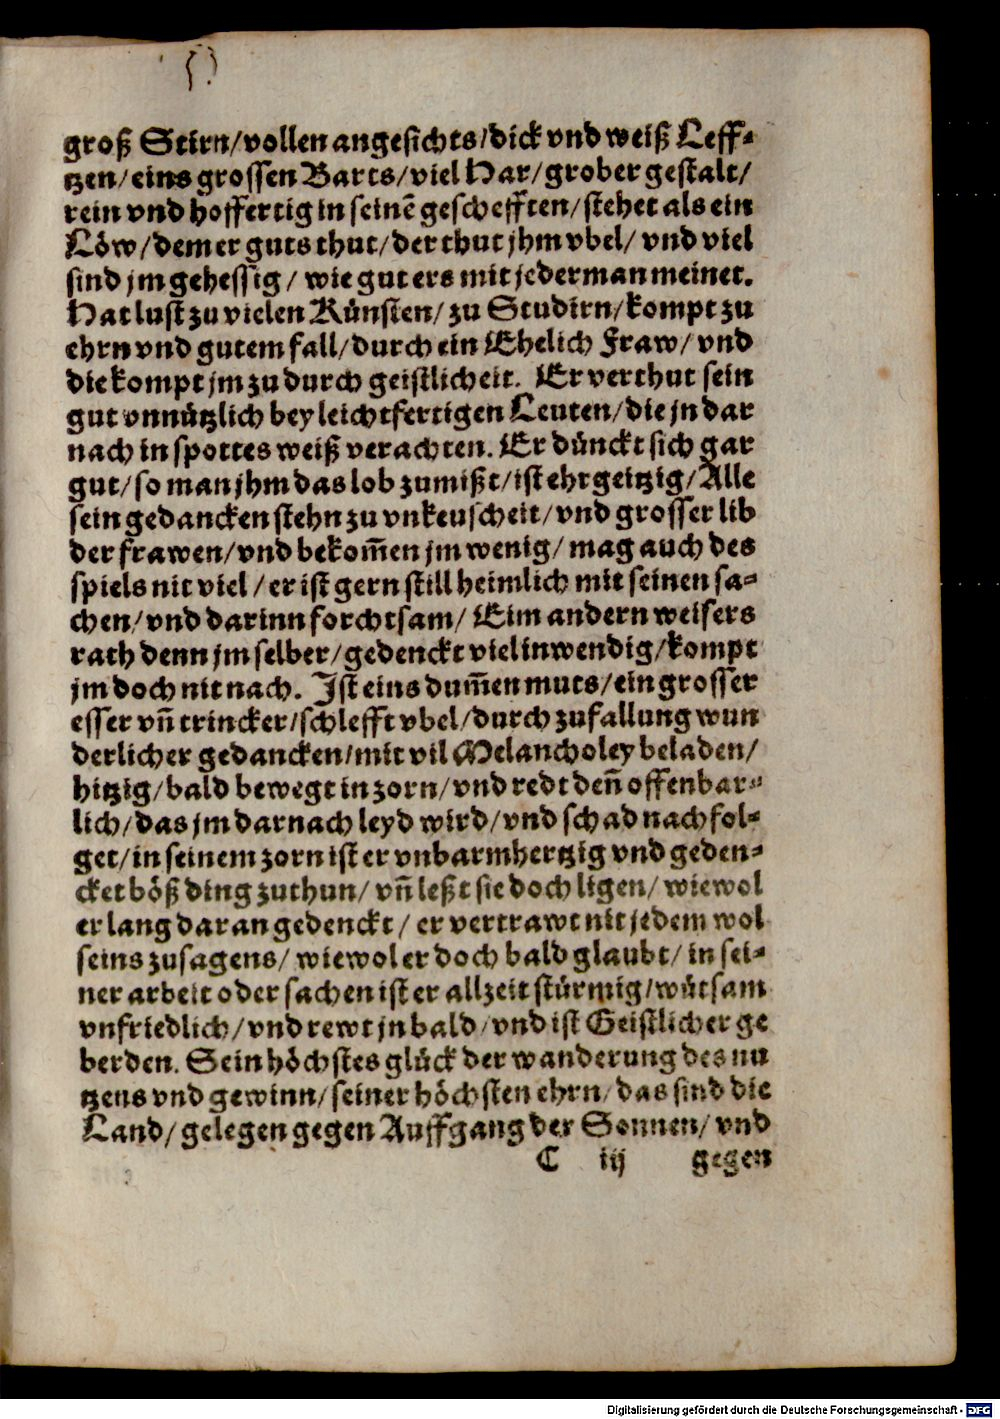 groß Stirn/vollen angesichts/dick vnd weiß Leff⸗
tzen/eins grossen Barts/viel Har/grober gestalt/
rein vnd hoffertig in seinē geschefften/stehet als ein
Löw/dem er guts thut/der thut jhm vbel/ vnd viel
sind jm gehessig/ wie gut ers mit jederman meinet.
Hat lust zu vielen Künsten/ zu Studirn/kompt zu
ehrn vnd gutem fall/durch ein Ehelich Fraw/ vnd
die kompt jm zu durch geistlicheit. Er verthut sein
gut vnnützlich bey leichtfertigen Leuten/die jn dar
nach in spottes weiß verachten. Er dünckt sich gar
gut/ so man jhm das lob zumißt/ist ehrgeitzig/Alle
sein gedancken stehn zu vnkeuscheit/vnd grosser lib
der frawen/vnd bekom̄en jm wenig/ mag auch des
spiels nit viel/er ist gern still heimlich mit seinen sa⸗
chen/vnd darinn forchtsam/ Eim andern weisers
rath denn jm selber/gedenckt viel inwendig/kompt
jm doch nit nach. Ist eins dum̄en muts/ein grosser
esser vn̄ trincker/schlefft vbel/durch zufallung wun
derlicher gedancken/mit vil Melancholey beladen/
hitzig/bald bewegt in zorn/vnd redt den̄ offenbar⸗
lich/das jm darnach leyd wird/vnd schad nachfol⸗
get/in seinem zorn ist er vnbarmhertzig vnd geden⸗
cket böß ding zuthun/ vn̄ leßt sie doch ligen/ wiewol
er lang daran gedenckt/ er vertrawt nit jedem wol
seins zusagens/ wiewol er doch bald glaubt/ in sei⸗
ner arbeit oder sachen ist er allzeit stürmig/wütsam
vnfriedlich/vnd rewt jn bald/vnd ist Geistlicher ge
berden. Sein höchstes glück der wanderung des nu
tzens vnd gewinn/seiner höchsten ehrn/das sind die
Land/gelegen gegen Auffgang der Sonnen/ vnd
C iij gegen
Digitalisierung gefördert durch die Deutsche Forschungsgemeinschaft - DFG